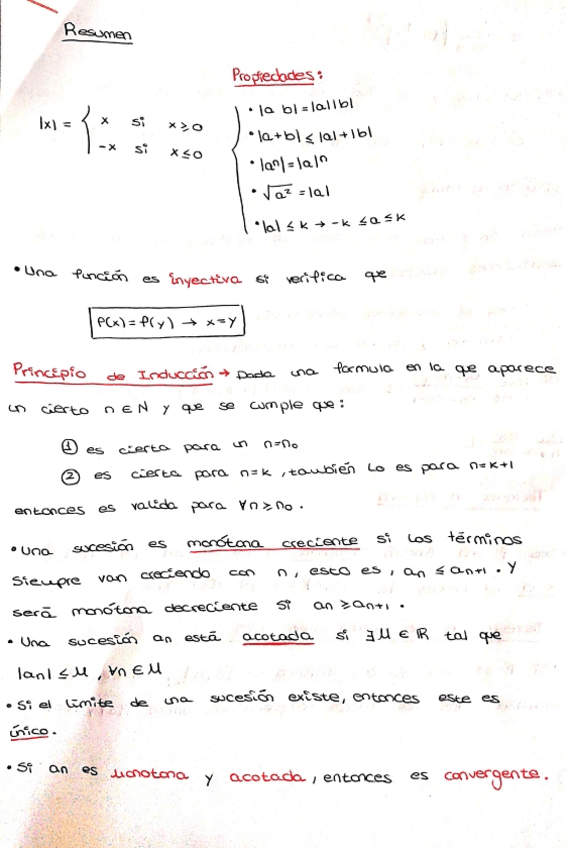 Resumen
Propiedades:
|x| = { x si x ≥ 0
-x si x ≤ 0
• |a b| = |a||b|
• |a+b| ≤ |a| + |b|
• |aⁿ| = |a|ⁿ
• √a² = |a|
• |a| ≤ k → -k ≤ a ≤ k
• Una función es inyectiva si verifica que
f(x) = f(y) → x = y
Principio de Inducción → Dada una formula en la que aparece
un cierto n ∈ N y que se cumple que:
① es cierta para un n=n₀
② es cierta para n=k, también lo es para n=k+1
entonces es valida para ∀n ≥ n₀.
• Una sucesión es monótona creciente si los términos
siempre van creciendo con n, esto es, an ≤ an+1. Y
será monótona decreciente si an ≥ an+1.
• Una sucesión an está acotada si ∃M ∈ ℝ tal que
|an| ≤ M, ∀n ∈ M
• Si el límite de una sucesión existe, entonces este es
único.
• Si an es monotona y acotada, entonces es convergente.